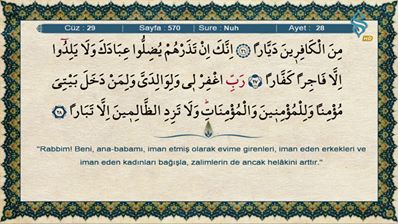 Cüz : 29 Sayfa : 570 Sure : Nuh Ayet : 28
HD
مِنَ الْكَافِرٖينَ دَيَّارًا ﴿٢٦﴾ اِنَّكَ اِنْ تَذَرْهُمْ يُضِلُّوا عِبَادَكَ وَلَا يَلِدُٓوا
اِلَّا فَاجِرًا كَفَّارًا ﴿٢٧﴾ رَبِّ اغْفِرْ لٖى وَلِوَالِدَىَّ وَلِمَنْ دَخَلَ بَيْتِىَ
مُؤْمِنًا وَلِلْمُؤْمِنٖينَ وَالْمُؤْمِنَاتِۜ وَلَا تَزِدِ الظَّالِمٖينَ اِلَّا تَبَارًا ﴿٢٨﴾
"Rabbim! Beni, ana-babamı, iman etmiş olarak evime girenleri, iman eden erkekleri ve
iman eden kadınları bağışla, zalimlerin de ancak helâkini arttır."